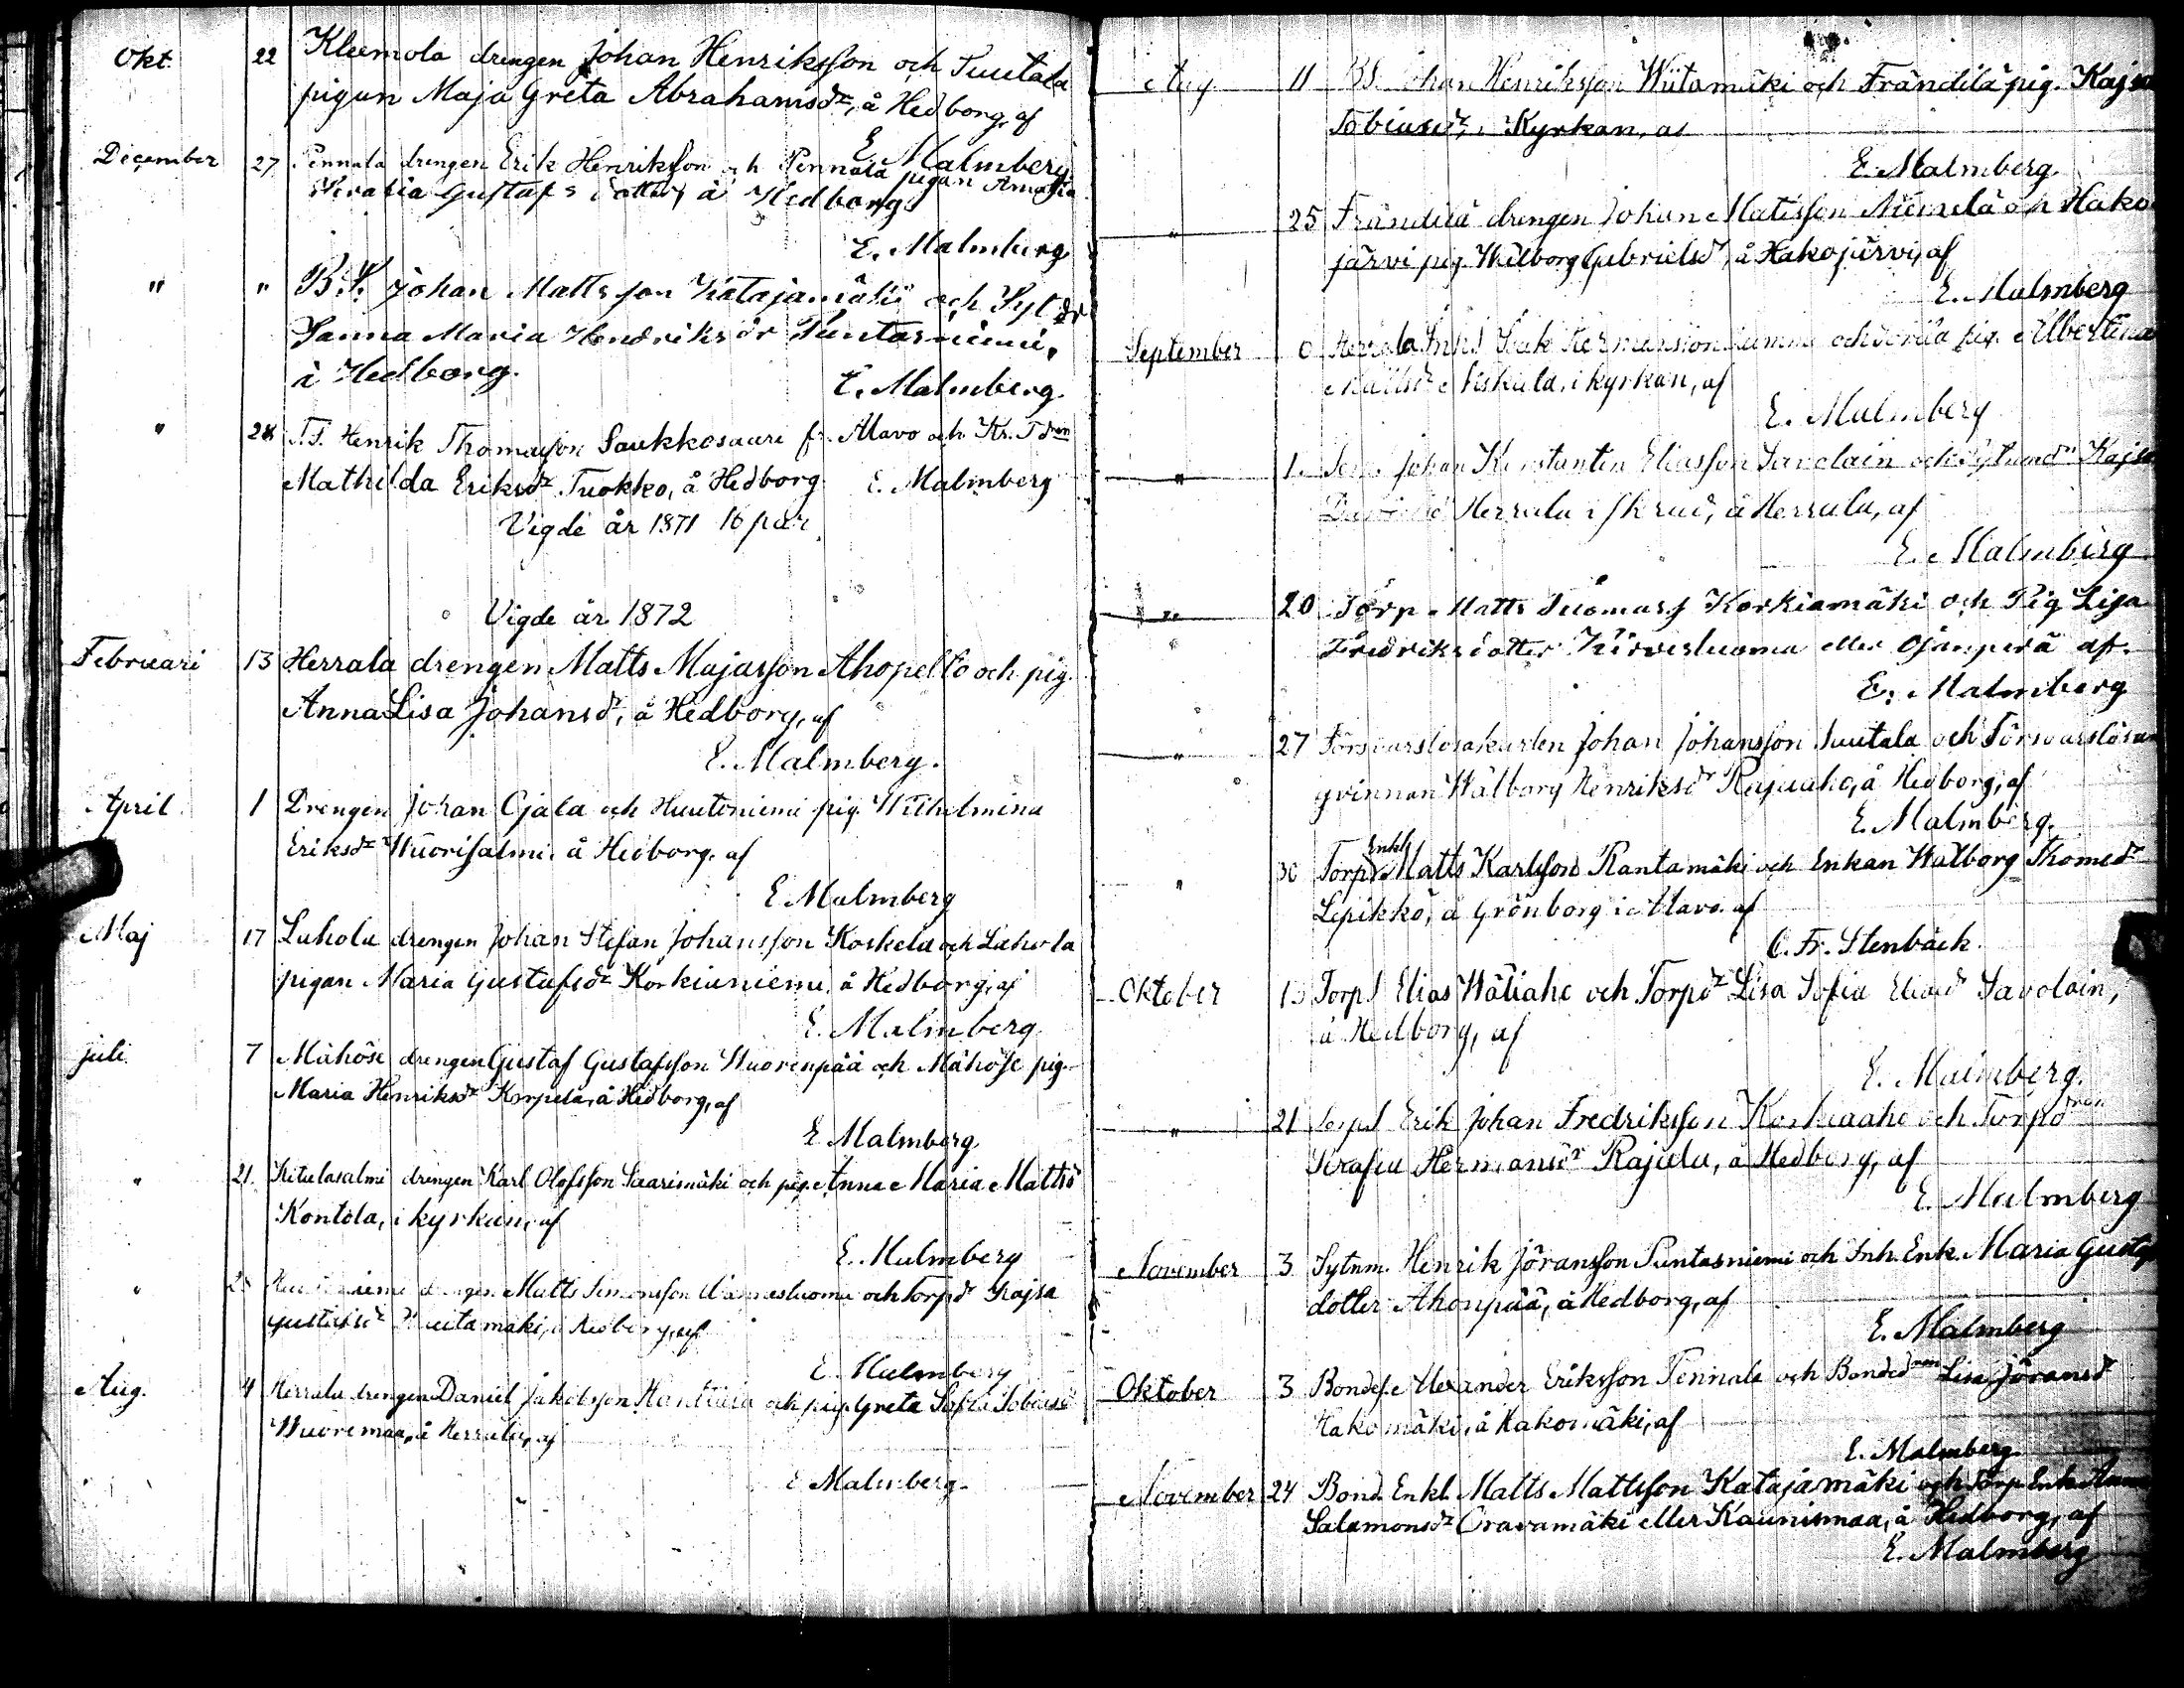 Okt. 22 Kleemola drengen Johan Henriksson och Tuutala
pigan Maja Greta Abrahamsdr, å Hedborg, af
E Malmberg
December 27 Pennala drengen Erik Henriksson och Pennala pigan Amalia
Gustafs dotter, å Hedborg.
E. Malmberg
" " B.S. Johan Mattsson Katajamäki och Syt dr
Sanna Maria Hendriksdr Puntasniemi,
å Hedborg.
E. Malmberg.
" 28 T.S. Henrik Thomasson Saukkosaari fr. Alavo och Kr. Tdren
Mathilda Eriksdr Tuokko, å Hedborg E. Malmberg
Vigde år 1871 16 par
Vigde år 1872
Februari 13 Herrala drengen Matts Majasson Ahopelto och pig.
Anna Lisa Johansdr, å Hedborg, af
E. Malmberg.
April 1 Drengen Johan Ojala och Huutoniemi pig. Wilhelmina
Eriksdr Wuorisalmi å Hedborg, af
E Malmberg
Maj 17 Luhola drengen Johan Stefan Johansson Koskela och Luhola
pigan Maria Gustafsdr Korkianiemi, å Hedborg, af
E. Malmberg.
Juli 7 Mähöse drengen Gustaf Gustafsson Wuorenpää och Mähöse pig.
Maria Henriksdr Korpela, å Hedborg, af
E Malmberg
" 21. Ketulasalmi drengen Karl Olofsson Saarimäki och pig. Anna Maria Mattsd
Kontola, i kyrkan, af
E. Malmberg
" Matts Simonsson och Torpdr Kajsa
Gustafsdr å Hedborg, af
E. Malmberg
Aug. 4 Herrala drengen Daniel Jakobsson och pig. Greta Sofia Tobiasd
Wuorimaa, å Herrala, af
E Malmberg.
Aug. 11 B.S. Johan Henriksson Wiitamäki och Frändilä pig. Kajsa
Tobiasdr, i Kyrkan, af
E. Malmberg.
" 25 Frändilä drengen Johan Matsson Niemelä och Hako
järvi pig. Walborg Gabrielsd, å Hakojärvi, af
E. Malmberg
September Herrala Inhs Isak Hermansson och pig. Albertina
Mattsdr i kyrkan, af
E. Malmberg
" Johan Konstantin Eliasson Savolain och Kajsa
Herrala i skrud, å Herrala, af
E. Malmberg
" 20 Torp. Matts Tuomass Korkiamäki och Pig Lisa
Fredriksdotter Kirvesluoma eller Ojanperä af.
E. Malmberg
" 27 Försvarslösakarlen Johan Johansson Tuutala och Försvarslösa
qvinnan Walborg Henriksdr Rajuaho, å Hedborg, af
E. Malmberg.
" 30 Torp Enkl Matts Karlsson Rantamäki och Enkan Walborg Thomedr
Lepikkö, å Grönborg i Alavo, af
C. Fr. Stenbäck.
Oktober 13 TorpS Elias Wäliaho och Torpdr Lisa Sofia Eliasd Savolain,
å Hedborg, af
E. Malmberg.
" 21 TorpS Erik Johan Fredriksson Korkiaaho och Torpdren
Serafia Hermansdr Rajala, å Hedborg, af
E. Malmberg
November 3 Sytnm. Henrik Jöransson Puntasniemi och Inh. Enk. Maria Gustaf
dotter Ahonpää, å Hedborg, af
E. Malmberg
Oktober 3 Bondes. Alexander Eriksson Pennala och Bondedren Lisa Jöransd
Hakomäki, å Hakomäki, af
E. Malmberg.
November 24 Bond. Enkl. Matts Mattsson Katajamäki och Torp. Enk. Anna
Salamonsdr Oravamäki eller Kaunismaa, å Hedborg, af
E. Malmberg